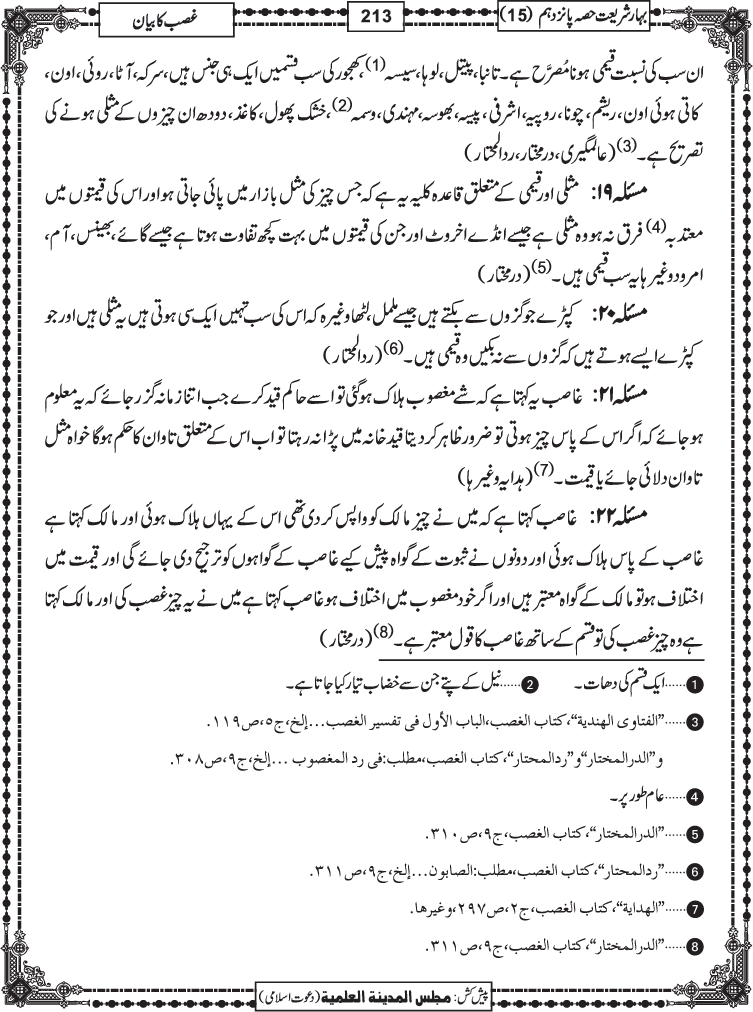 بہارِ شریعت حصہ پانزدہم (15)
213
غصب کا بیان
ان سب کی نسبت قیمی ہونا مُصرَّح ہے۔ تانبا، پیتل، لوہا، سیسہ(1)، کھجور کی سب قسمیں ایک ہی جنس ہیں، سرکہ، آٹا، روئی، اون،
کاتی ہوئی اون، ریشم، چونا، روپیہ، اشرفی، پیسہ، بھوسہ، مہندی، وسمہ(2)، خشک پھول، کاغذ، دودھ ان چیزوں کے مثلی ہونے کی
تصریح ہے۔(3) (عالمگیری، درمختار، ردالمحتار)
مسئلہ ۱۹: مثلی اور قیمی کے متعلق قاعدہ کلیہ یہ ہے کہ جس چیز کی مثل بازار میں پائی جاتی ہو اور اس کی قیمتوں میں
معتدبہ(4) فرق نہ ہو وہ مثلی ہے جیسے انڈے اخروٹ اور جن کی قیمتوں میں بہت کچھ تفاوت ہوتا ہے جیسے گائے، بھینس، آم،
امرود وغیرہا یہ سب قیمی ہیں۔(5) (درمختار)
مسئلہ ۲۰: کپڑے جو گزوں سے بکتے ہیں جیسے ململ، لٹھا وغیرہ کہ اس کی سب تہیں ایک سی ہوتی ہیں یہ مثلی ہیں اور جو
کپڑے ایسے ہوتے ہیں کہ گزوں سے نہ بکیں وہ قیمی ہیں۔(6) (ردالمحتار)
مسئلہ ۲۱: غاصب یہ کہتا ہے کہ شے مغصوب ہلاک ہوگئی تو اسے حاکم قید کرے جب اتنا زمانہ گزر جائے کہ یہ معلوم
ہو جائے کہ اگر اس کے پاس چیز ہوتی تو ضرور ظاہر کر دیتا قید خانہ میں پڑا نہ رہتا تو اب اس کے متعلق تاوان کا حکم ہوگا خواہ مثل
تاوان دلائی جائے یا قیمت۔(7) (ہدایہ وغیرہا)
مسئلہ ۲۲: غاصب کہتا ہے کہ میں نے چیز مالک کو واپس کر دی تھی اس کے یہاں ہلاک ہوئی اور مالک کہتا ہے
غاصب کے پاس ہلاک ہوئی اور دونوں نے ثبوت کے گواہ پیش کیے غاصب کے گواہوں کو ترجیح دی جائے گی اور قیمت میں
اختلاف ہو تو مالک کے گواہ معتبر ہیں اور اگر خود مغصوب میں اختلاف ہو غاصب کہتا ہے میں نے یہ چیز غصب کی اور مالک کہتا
ہے وہ چیز غصب کی تو قسم کے ساتھ غاصب کا قول معتبر ہے۔(8) (درمختار)
1......ایک قسم کی دھات۔ 2......نیل کے پتے جن سے خضاب تیار کیا جاتا ہے۔
3......”الفتاوی الهندية“، كتاب الغصب،الباب الأول فى تفسير الغصب...إلخ،ج٥،ص١١٩.
و”الدرالمختار“و”ردالمحتار“، كتاب الغصب،مطلب:فى رد المغصوب ...إلخ،ج٩،ص٣٠٨.
4......عام طور پر۔
5......”الدرالمختار“، كتاب الغصب،ج٩،ص٣١٠.
6......”ردالمحتار“، كتاب الغصب،مطلب:الصابون...إلخ،ج٩،ص٣١١.
7......”الهداية“، كتاب الغصب،ج٢،ص٢٩٧،وغيرها.
8......”الدرالمختار“، كتاب الغصب،ج٩،ص٣١١.
پیش کش: مجلس المدینۃ العلمیۃ (دعوت اسلامی)